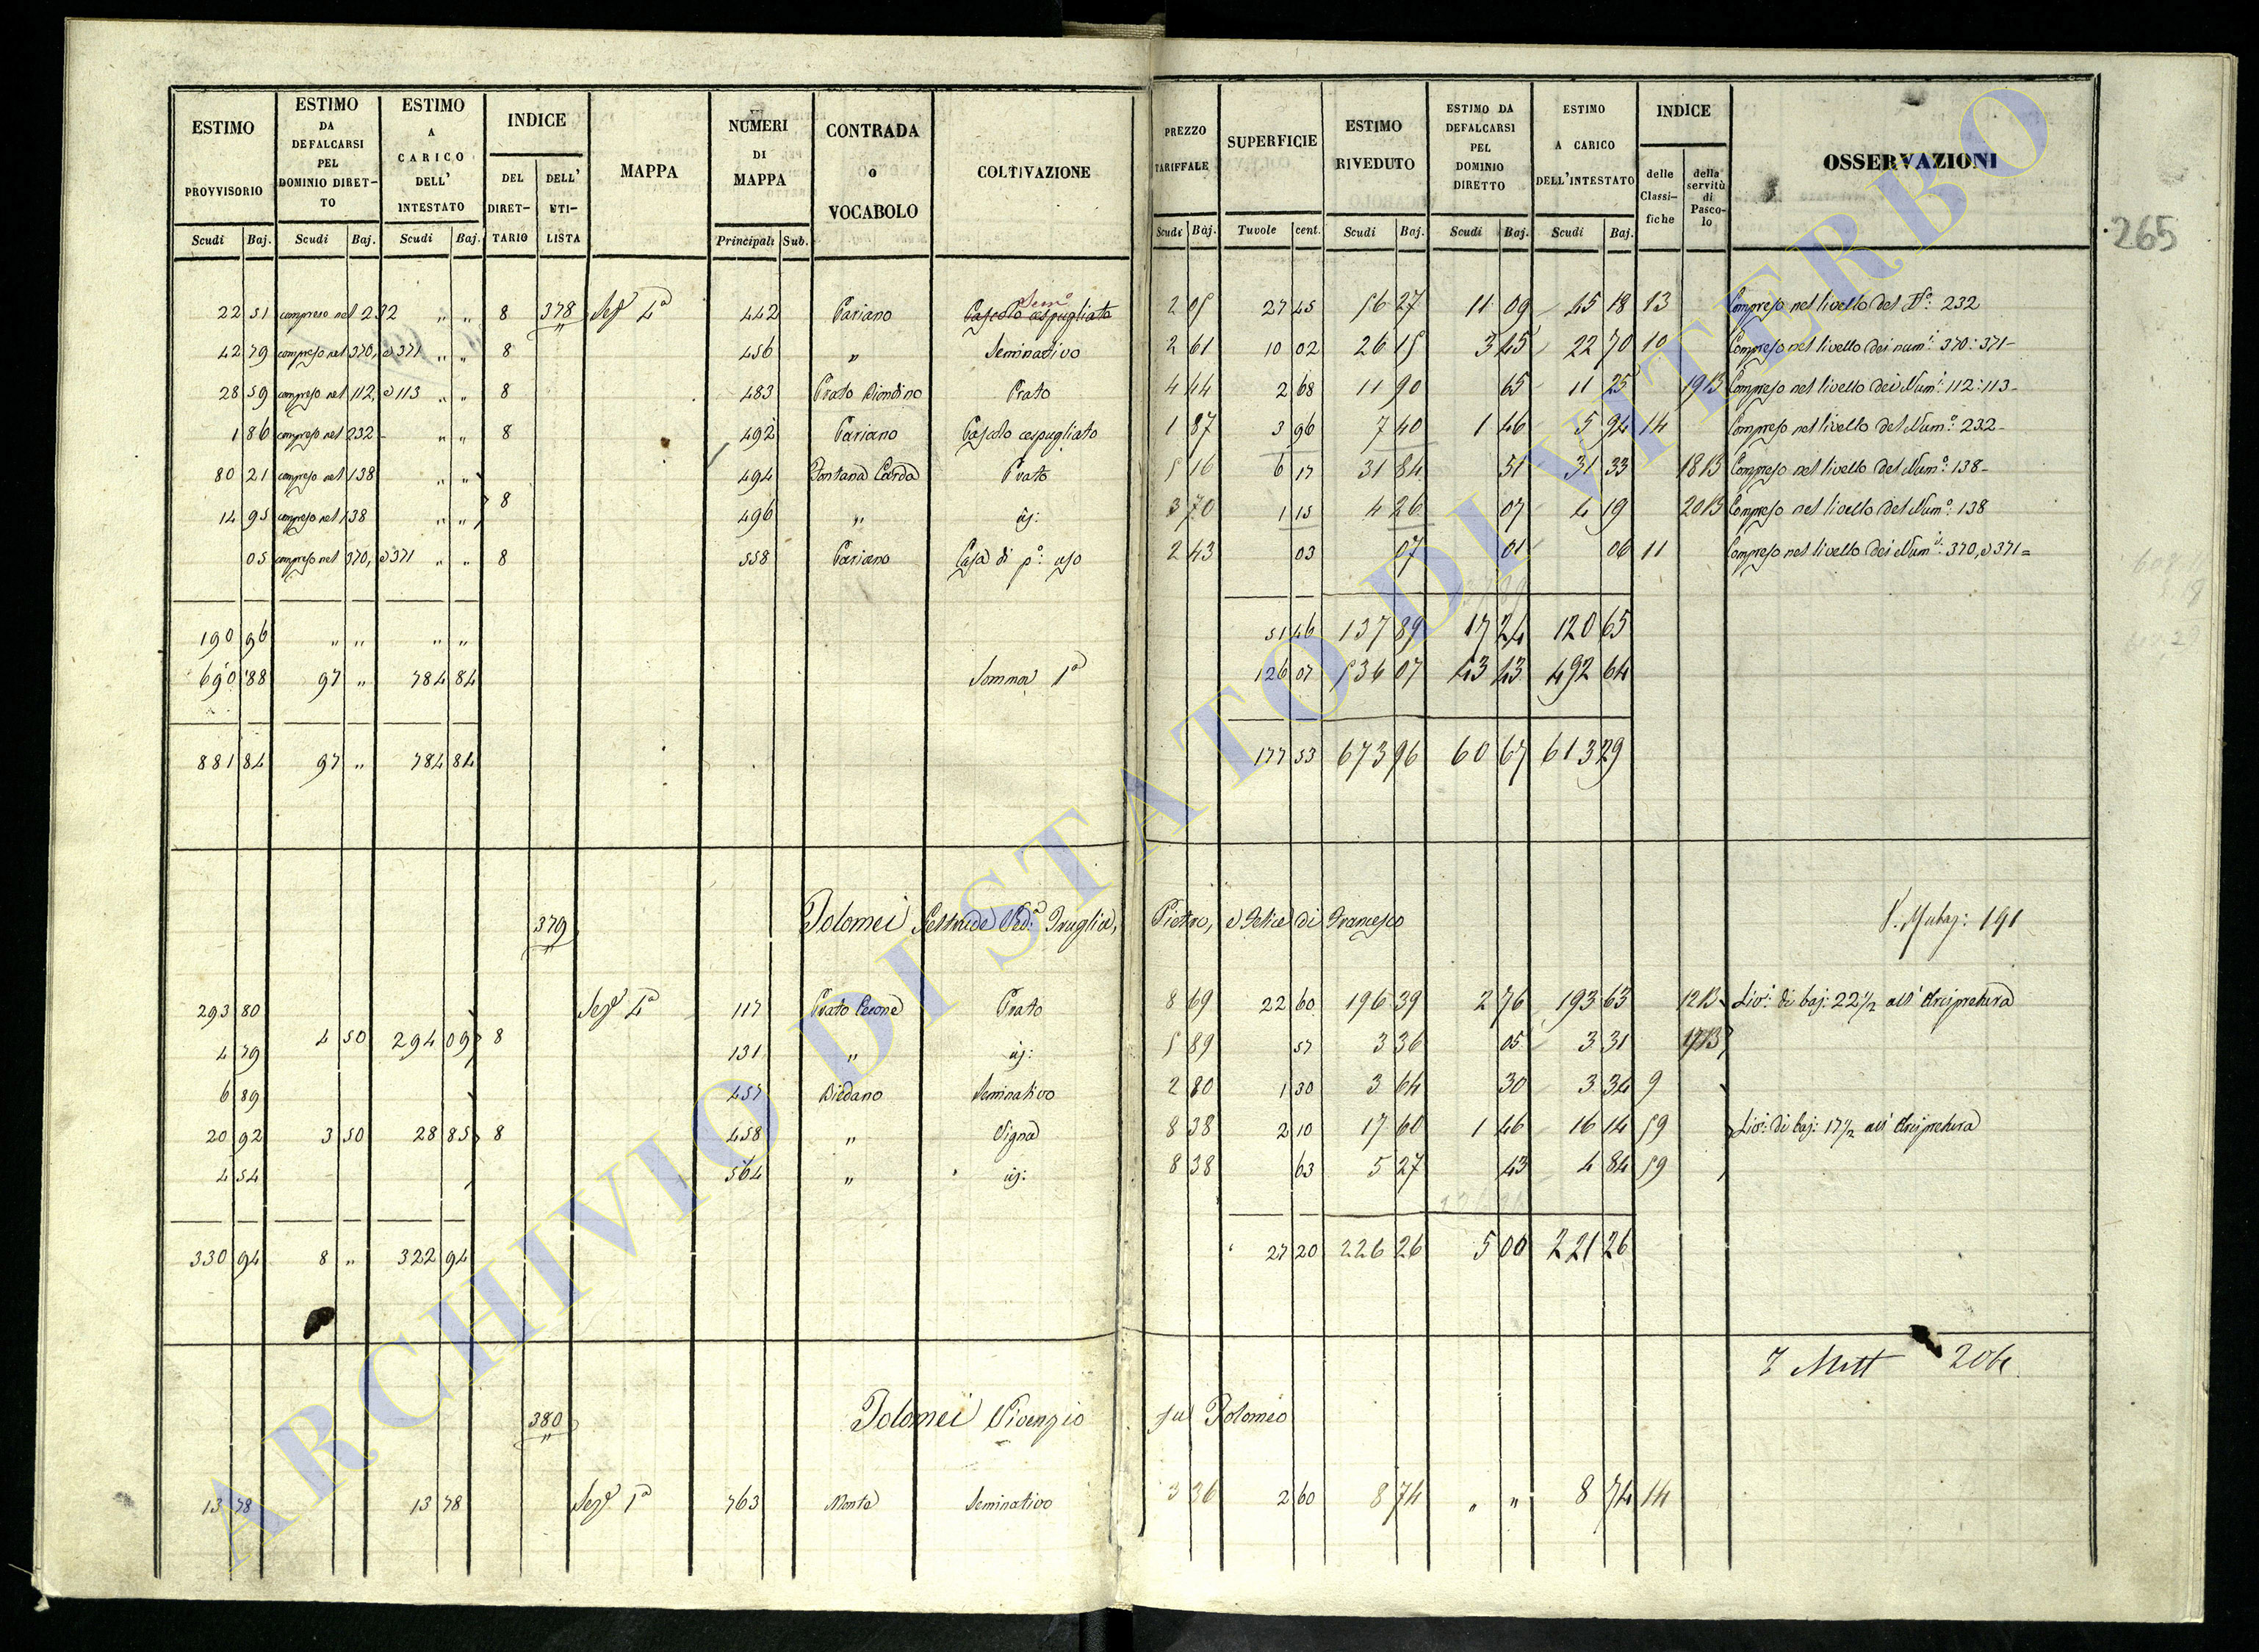 ESTIMO PROVVISORIO
ESTIMO DA DEFALCARSI PEL DOMINIO DIRET-TO
ESTIMO A CARICO DELL' INTESTATO
INDICE
DEL DIRET-TARIO
DELL' UTI-LISTA
MAPPA
NUMERI DI MAPPA
CONTRADA o VOCABOLO
COLTIVAZIONE
PREZZO TARIFFALE
SUPERFICIE
ESTIMO RIVEDUTO
ESTIMO DA DEFALCARSI PEL DOMINIO DIRETTO
ESTIMO A CARICO DELL'INTESTATO
INDICE
delle Classi-fiche
della servitù di Pasco-lo
OSSERVAZIONI
265
Scudi Baj. Scudi Baj. Scudi Baj. Principali Sub. Scudi Baj. Tavole cent. Scudi Baj. Scudi Baj. Scudi Baj.
22 51 compreso nel 232 " " 8 378 Sez.e 4a 442 Cariano Semo Pascolo cespugliato 2 05 27 45 56 27 11 09 45 18 13 Compreso nel livello del No: 232
42 79 compreso nel 370, e 371 " " 8 456 " Seminativo 2 61 10 02 26 15 3 45 22 70 10 Compreso nel livello dei numi: 370: 371-
28 59 compreso nel 112, e 113 " " 8 483 Prato Biondino Prato 4 44 2 68 11 90 65 11 25 19 B Compreso nel livello dei Numi: 112: 113-
1 86 compreso nel 232- " " 8 492 Cariano Pascolo cespugliato 1 87 3 96 7 40 1 46 5 94 14 Compreso nel livello del Numo: 232-
80 21 compreso nel 138 " " 494 Fontana Corda Prato 5 16 6 17 31 84 51 31 33 18 B Compreso nel livello del Numo: 138-
8
14 95 compreso nel 138 " " 496 " id: 3 70 1 15 4 26 07 4 19 20 B Compreso nel livello del Numo: 138
05 compreso nel 370, e 371 " " 8 558 Cariano Casa di po: uso 2 43 03 07 01 06 11 Compreso nel livello dei Numi: 370, e 371=
190 96 " " " " 51 46 137 89 17 24 120 65
690 88 97 " 784 84 Somma 1a 126 07 536 07 43 43 492 64
881 84 97 " 784 84 177 53 673 96 60 67 613 29
379 Tolomei Geltrude Ved.a Truglia, Pietro, e Felice di Francesco
191
293 80 Sez.e 4a 117 Prato Cecone Prato 8 69 22 60 196 39 2 76 193 63 12 B Livo: di baj: 22 1/2 all' Arcipretura
4 50 294 09 8
4 79 131 " id: 5 89 57 3 36 05 3 31 17 B
6 89 457 Biedano Seminativo 2 80 1 30 3 64 30 3 34 9
20 92 3 50 28 85 8 458 " Vigna 8 38 2 10 17 60 1 46 16 14 59 Livo: di baj: 17 1/2 all' Arcipretura
4 54 564 " id: 8 38 63 5 27 43 4 84 59
330 94 8 " 322 94 27 20 226 26 5 00 221 26
380 Tolomei Vivenzio fu Tolomeo
13 78 13 78 Sez.e 1a 763 Monte Seminativo 3 36 2 60 8 74 " " 8 74 14
ARCHIVIO DI STATO DI VITERBO